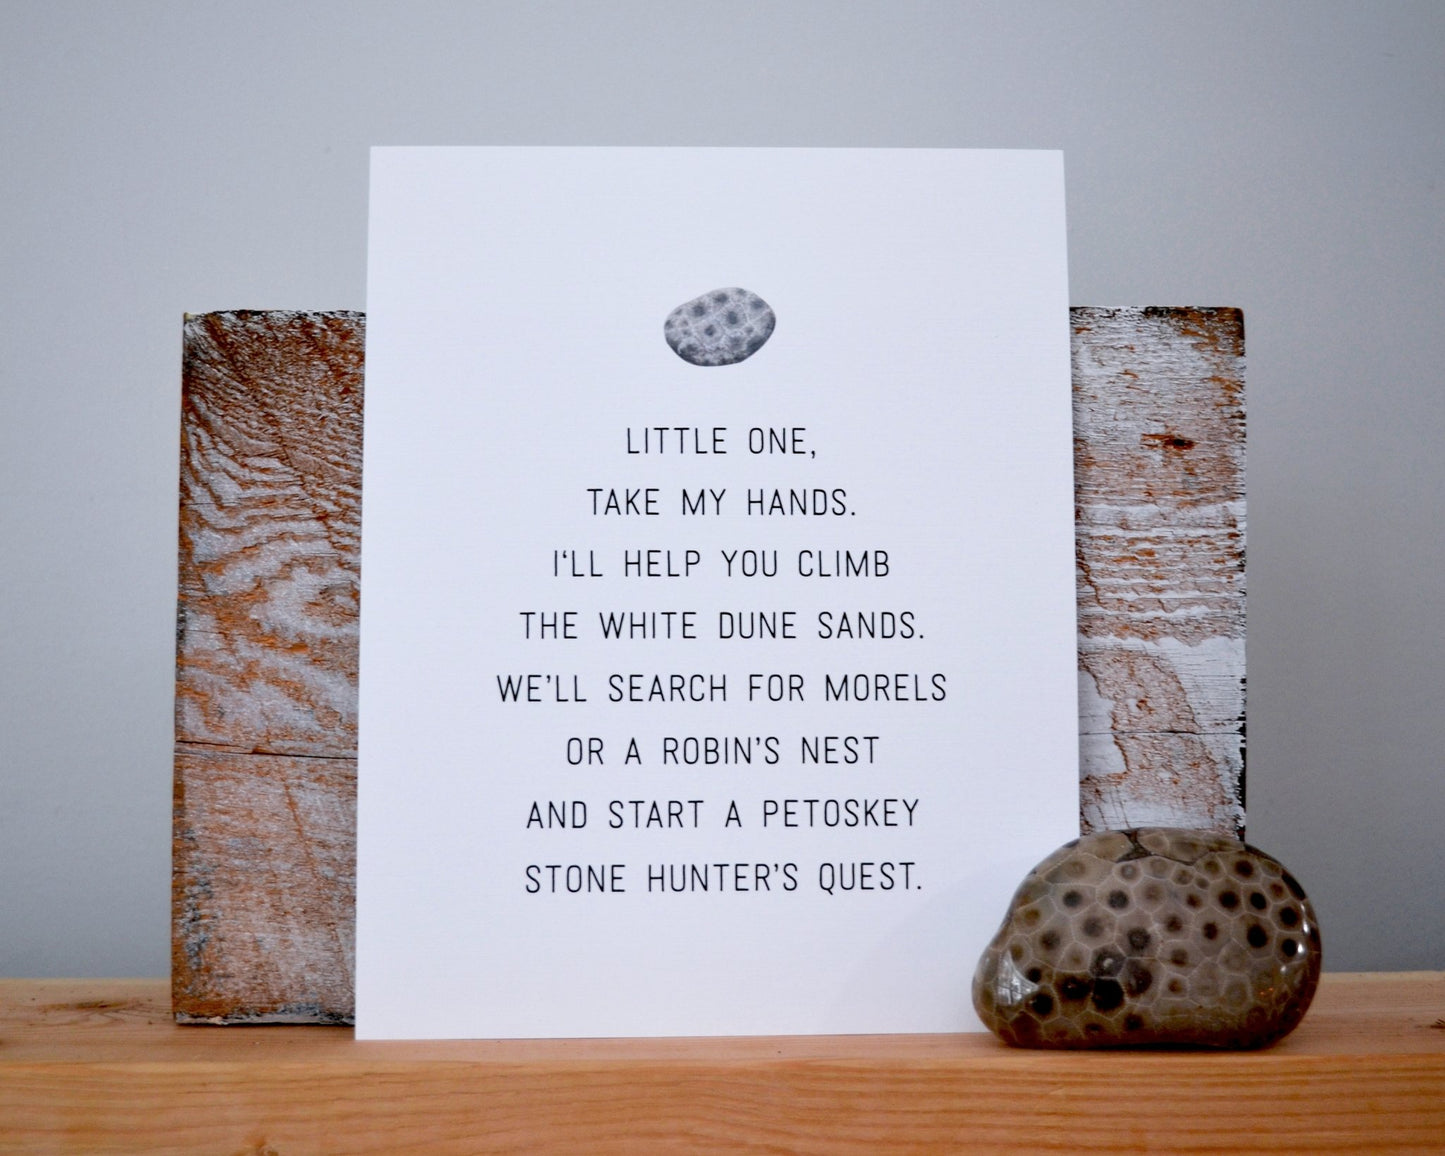 LITTLE ONE,
TAKE MY HANDS.
I‘LL HELP YOU CLIMB
THE WHITE DUNE SANDS.
WE’LL SEARCH FOR MORELS
OR A ROBIN’S NEST
AND START A PETOSKEY
STONE HUNTER’S QUEST.